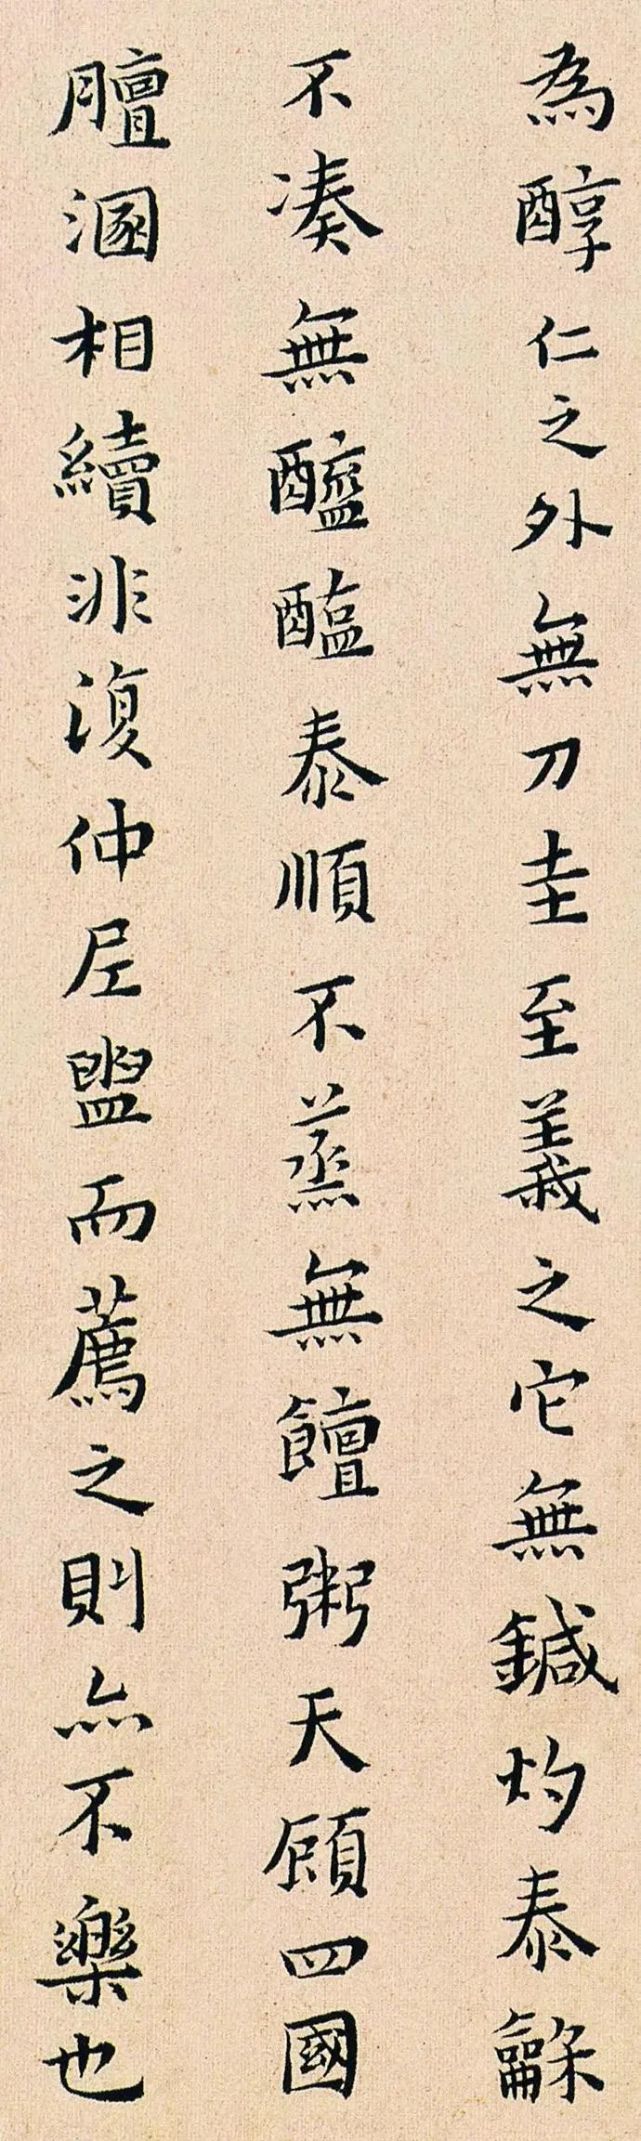 為醇仁之外無刀圭至義之它無鍼灼泰龢
不凑無醯醢泰順不蒸無饘粥天頋四國
膻溷相續非復仲尼盥而薦之則亦不樂也